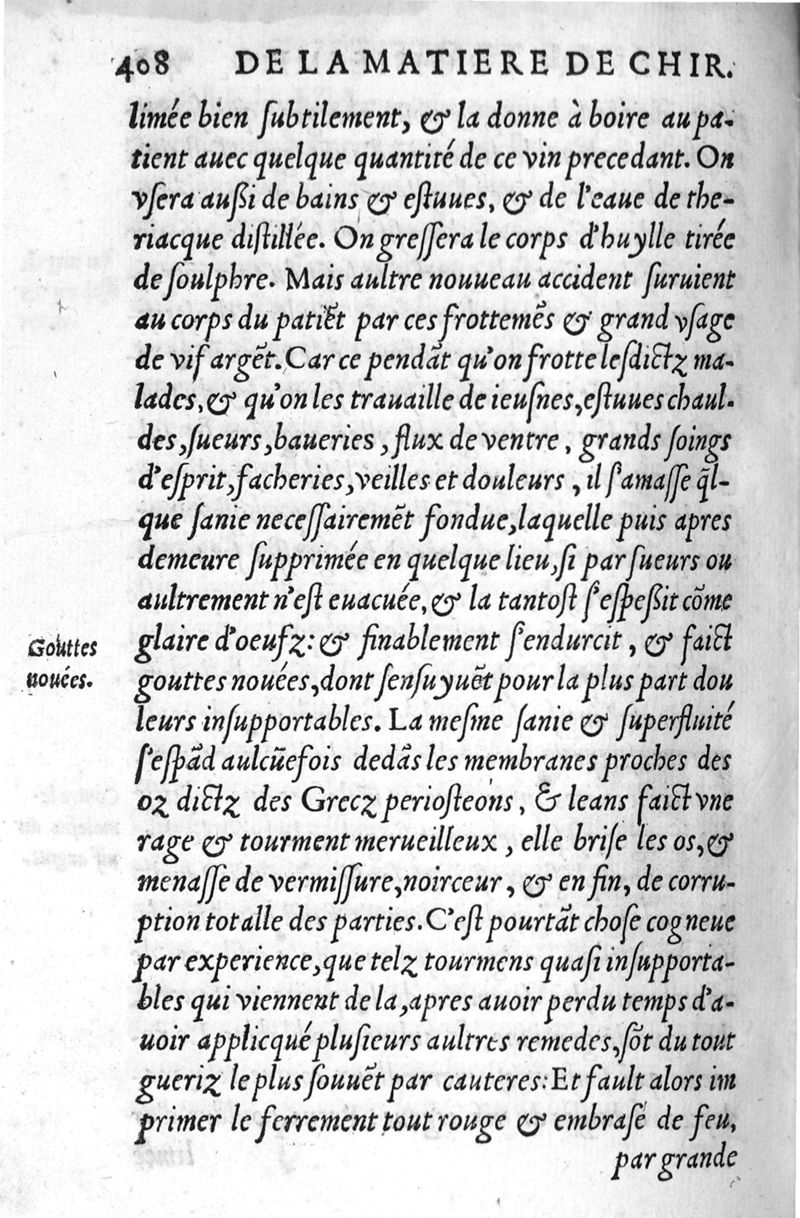 408 DE LA MATIERE DE CHIR.
limée bien ſubtilement, & la donne à boire au pa-
tient auec quelque quantité de ce vin precedant. On
vſera außi de bains & eſtuues, & de l'eaue de the-
riacque diſtillée. On greſſera le corps d'huylle tirée
de ſoulphre. Mais aultre nouueau accident ſuruient
au corps du patiẽt par ces frottemẽs & grand vſage
de vif argẽt. Car ce pendãt qu'on frotte leſdictz ma-
lades, & qu'on les trauaille de ieuſnes, eſtuues chaul-
des, ſueurs, baueries, flux de ventre, grands ſoings
d'eſprit, facheries, veilles et douleurs, il ſ'amaſſe q̃l-
que ſanie neceſſairemẽt fondue, laquelle puis apres
demeure ſupprimée en quelque lieu, ſi par ſueurs ou
aultrement n'eſt euacuée, & la tantoſt ſ'eſpeßit cõme
glaire d'oeufz: & finablement ſ'endurcit, & faict
Gouttes
nouées.
gouttes nouées, dont ſenſuyuẽt pour la plus part dou
leurs inſupportables. La meſme ſanie & ſuperfluité
ſ'eſpãd aulcũefois dedãs les membranes proches des
oz dictz des Grecz perioſteons, & leans faict vne
rage & tourment merueilleux, elle briſe les os, &
menaſſe de vermiſſure, noirceur, & en fin, de corru-
ption totalle des parties. C'eſt pourtãt choſe cogneue
par experience, que telz tourmens quaſi inſupporta-
bles qui viennent de la, apres auoir perdu temps d'a-
uoir applicqué pluſieurs aultres remedes, ſõt du tout
gueriz le plus ſouuẽt par cauteres: Et fault alors im
primer le ferrement tout rouge & embraſé de feu,
par grande